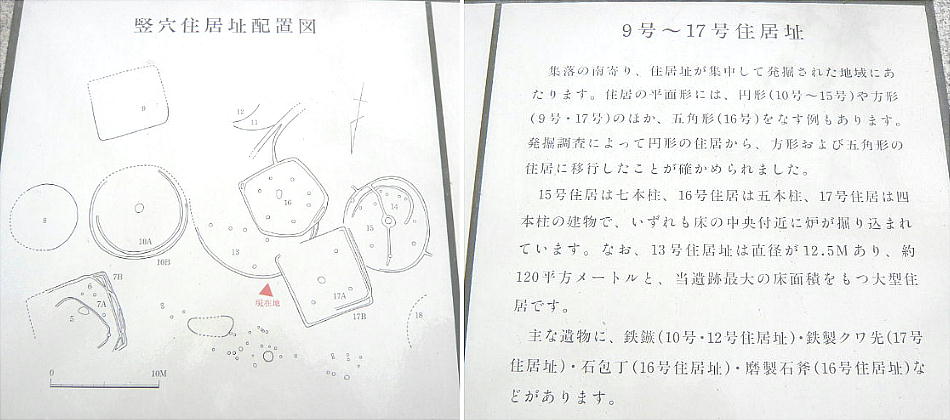 竪穴住居址配置図
9
12
11
16
14
15
8
10A
10B
13
7B
6
7A
5
17A
17B
現在地
18
0 10M
9号～17号住居址
集落の南寄り、住居址が集中して発掘された地域にあ
たります。住居の平面形には、円形(10号～15号)や方形
(9号・17号)のほか、五角形(16号)をなす例もあります。
発掘調査によって円形の住居から、方形および五角形の
住居に移行したことが確かめられました。
15号住居は七本柱、16号住居は五本柱、17号住居は四
本柱の建物で、いずれも床の中央付近に炉が掘り込まれ
ています。なお、13号住居址は直径が12.5Mあり、約
120平方メートルと、当遺跡最大の床面積をもつ大型住
居です。
主な遺物に、鉄鏃(10号・12号住居址)・鉄製クワ先(17号
住居址)・石包丁(16号住居址)・磨製石斧(16号住居址)な
どがあります。